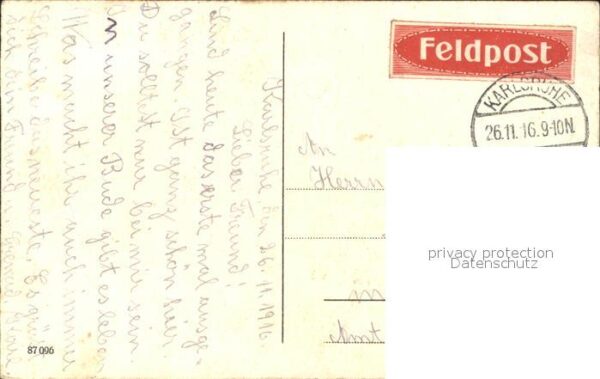 Feldpost
KARLSRUHE
26.11.16.9-10N.
An
Herrn
in
Amt
privacy protection
Datenschutz
Karlsruhe, den 26.11.1916.
Lieber Freund!
Sind heute das erste mal ausge-
gangen. Ist ganz schön hier.
Du solltest nur bei mir sein.
In unserer Bude gibt es leben
Was macht ihr auch immer
Schreibe das neueste. Es grüßt
dich dein Freund
87 096